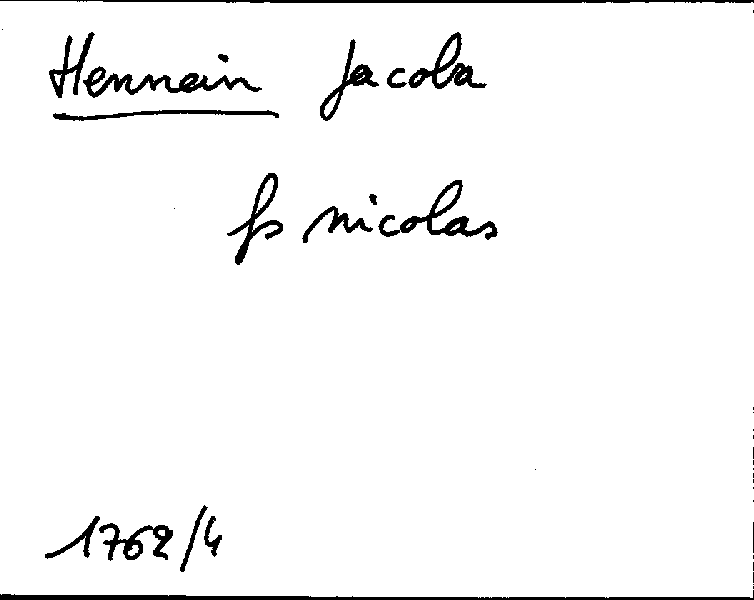 Hennein Jacoba
fs nicolas
1762/4